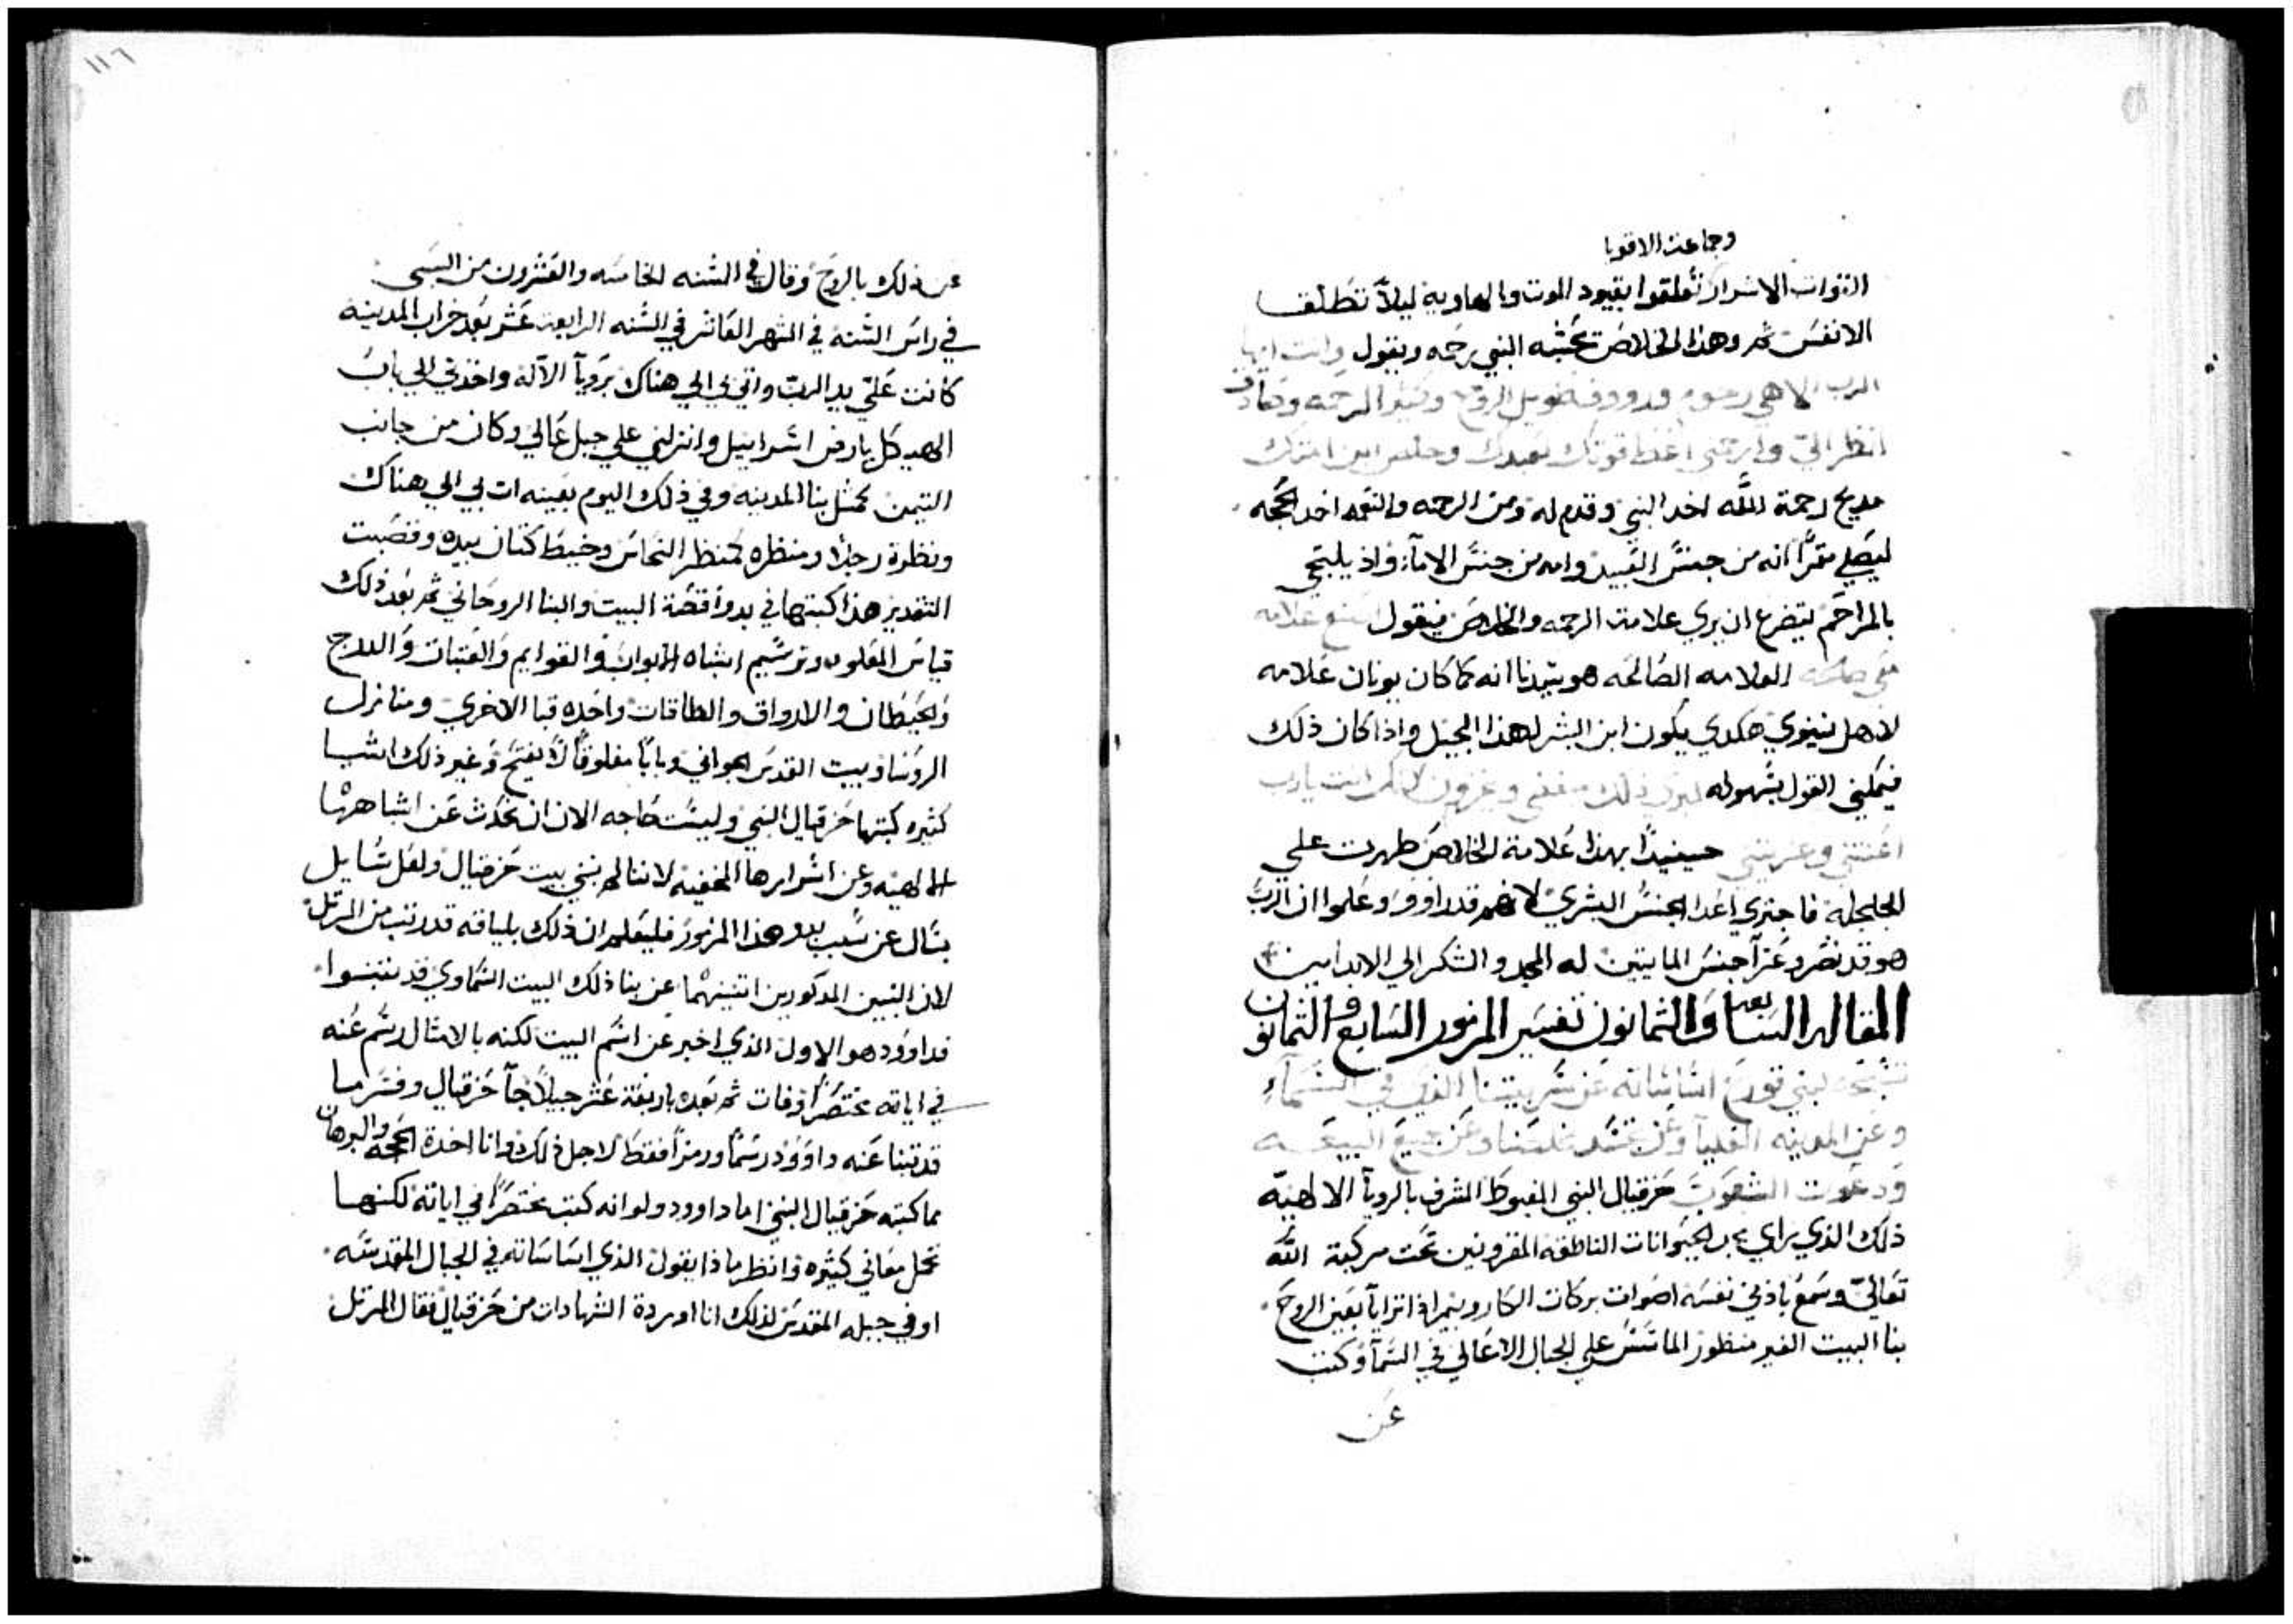 وجماعة الاقويا
الذوات الاشرار تُعلقوا بقيود الموت والهاوية ليلاً تطلق
الانفس ثم وهذا الخلاص تحننه النبي رحمه ويقول وانت ايها
الرب الاهي رحوم ورووف طويل الروح وكثير الرحمه وصادق
انظر اليّ وارحمني اعط قوتك لعبدك وخلص ابن امتك
مديح رحمة اللّه اخد النبي وقدم له ومن الرحمه والنعمه اخد الحجه
ليصلي مقراً انه من جنس العبيد وامه من جنس الاماء واذ يلتجي
بالمراحم يتضرع ان يري علامة الرحمه والخلاص فيقول اصنع علامه
معي صالحه العلامه الصالحه هو سيدنا انه كما كان يونان علامه
لاهل نينوي هكدي يكون ابن البشر لهذا الجيل واذا كان ذلك
فيمكني القول بسهوله ليري ذلك مبغضي ويخزون لانك انت يارب
اعنتني وعزيتني حينيداً بهذا علامة الخلاص ظهرت علي
الجلجله فاخزي اعدا الجنس البشري لانهم قد راوو وعلموا ان الرب
هو قد نصر وعزا جنس المايتين له المجد والشكر الي الابد امين
المقاله السابعه والثمانون تفسير المزمور السابع والثمانون
تسبحه لبني قورح اساساته عن سر بيتنا الذي في السماء
وعن المدينه العليا وعن تجسد مخلصنا وعن جميع البيعه
ودعوت الشعوب حزقيال النبي المغبوط المشرف بالرويا الالهيه
ذلك الذي راي مجد الحيوانات الناطقه المقرونين تحت مركبة اللّه
تعالي وسمع باذني نفسه اصوات بركات الكاروبيم اذ اترايا بعين الروح
بنا البيت الغير منظور الماسس علي الجبال الاعالي في السما وكتب
عن
١١٦
عن ذلك بالروح وقال في السنه الخامسه والعشرون من السبي
في راس السنه في الشهر العاشر في السنه الرابعة عشر بعد خراب المدينه
كانت عليّ يد الرب واتي بي الي هناك برويا الاله واخدني الي باب
الهيكل بارض اسراييل وانزلني علي جبل عالي وكان من جانب
التيمن كمثل بنا المدينه وفي ذلك اليوم بعينه اتي بي الي هناك
ونظرة رجلاً ومنظره كمنظر النحاس وخيط كتان بيده وقصبت
التقدير هذا كبتها في بدو قصة البيت والبنا الروحاني ثم بعد ذلك
قياس العلو وترسيم اشباه الابواب والقوايم والعتبات والدرج
والحيطان والاروا‌ق والطاقات واحده قبا الاخري ومنازل
الروسا وبيت القدس الجواني وباباً مغلوقاً لا يفتح وغير ذلك اشيا
كثيره كبتها حزقيال النبي وليست حاجه الان ان نحدث عن اشباهها
الالهيه وعن اسرارها المخفيه لاننا لم نبني بيت حزقيال ولعل سايل
يسال عن سبب بدو هذا المزمور فليعلم ان ذلك بلياقه قد رتب من المرتل
لان النبيين المدكورين اتنينهما عن بنا ذلك البيت السماوي قد تنبوا
فداوود هو الاول الذي اخبر عن اسم البيت لكنه بالامثال رسم عنه
في اياته مختصراً وفات ثم بعده باربعة عشر جيلاً جا حزقيال وفسر ما
قد تنبا عنه داوود رسماً ورمزاً فقط لاجل ذلك وانا اخدة الحجه والبرهان
مما كتبه حزقيال النبي اما داوود ولو انه كتب مختصراً في اياته لكنها
تحمل معاني كثيره وانظر ماذا يقول الذي اساساته في الجبال المقدسه
او في جبله المقدس لذلك انا اوردة الشهادات من حزقيال فقال المرتل